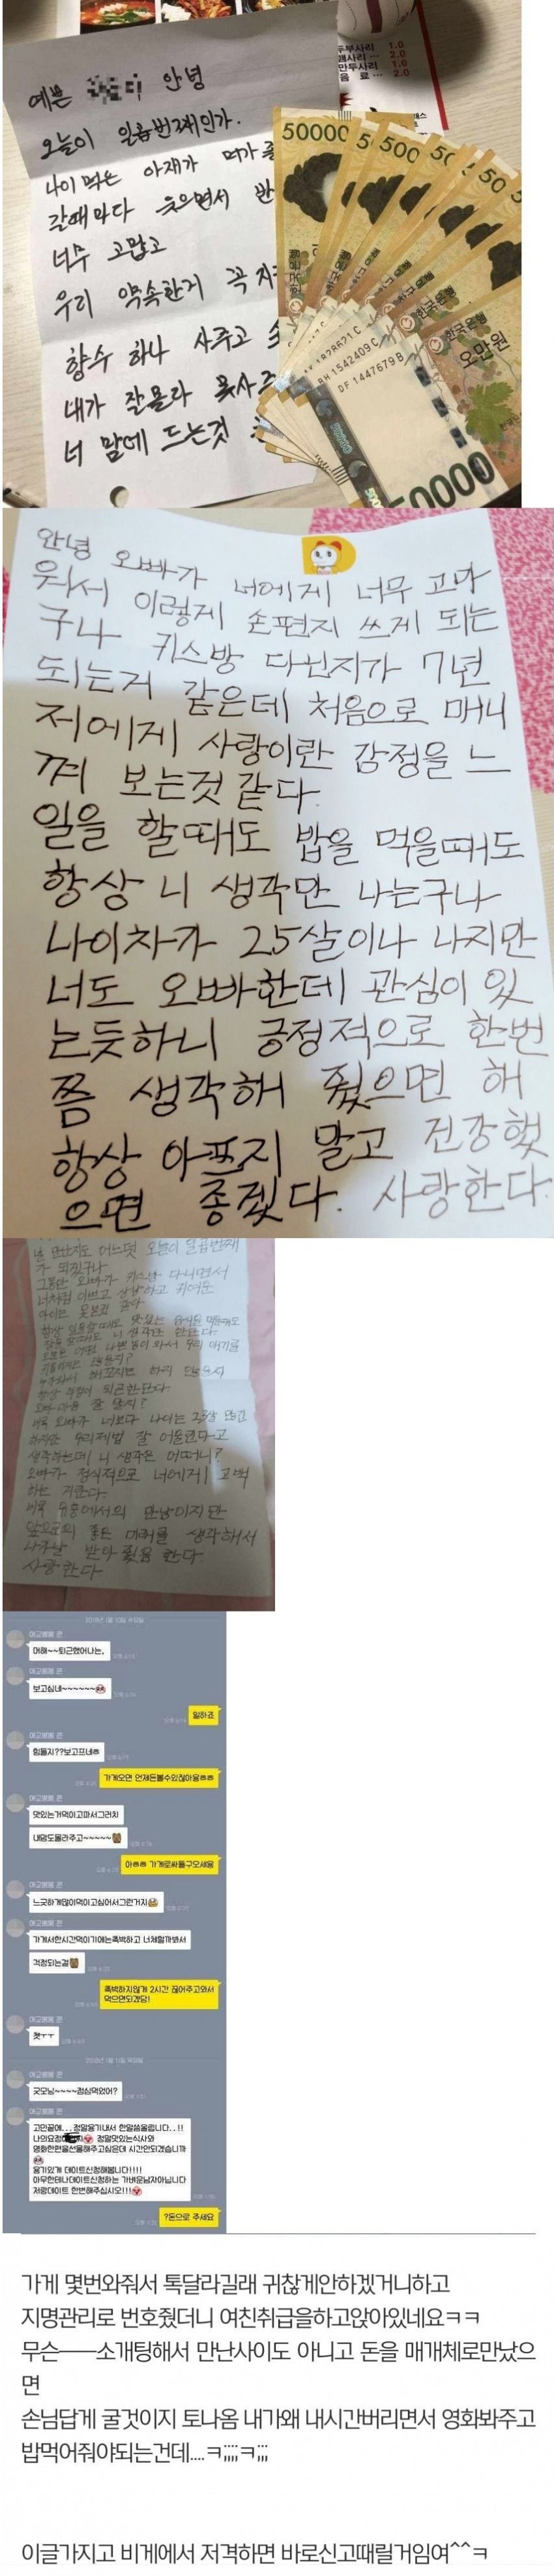 두부사리 1.0
만두사리 1.0
음 료 ... 2.0
예쁜 안녕
오늘이 일곱번째인가.
나이 먹은 아재가 뭐가 좋
갈때마다 웃으면서 반
너무 고맙고
우리 약속한거 꼭 지
향수 하나 사주고
내가 잘몰라 못사주
너 맘에 드는것
50000
한국은행
오만원
BH 1542409 C
DF 1447679 B
안녕 오빠가 너에게 너무 고마
워서 이렇게 손편지 쓰게 되는
구나 키스방 다닌지가 7년
되는거 같은데 처음으로 매니
저에게 사랑이란 감정을 느
껴 보는것 같다
일을 할때도 밥을 먹을때도
항상 니 생각만 나는구나
나이차가 25살이나 나지만
너도 오빠한데 관심이 있
는듯하니 긍정적으로 한번
쯤 생각해 줬으면 해
항상 아프지 말고 건강했
으면 좋겠다. 사랑한다.
널 만난지도 어느덧 오늘이 일곱번째
가 되었구나
그동안 오빠가 키스방 다니면서
너처럼 이쁘고 상냥하고 귀여운
아이는 못본것 같다
오빠 마음 잘 알지?
비록 오빠가 너보다 나이는 23살 많고
하지만 우리제법 잘 어울린다고
생각하는데 니 생각은 어떠니?
오빠가 정식적으로 너에게 고백
하는 거란다.
비록 업소에서의 만남이지만
앞으로의 좋은 미래를 생각해서
나의 받아 줬음 한다.
사랑한다
머해~~퇴근했어나는,
보고싶네~~~~~~
일하죠
힘들지??보고프네ㅎ
가게오면 언제든볼수있잖아용ㅎㅎ
맛있는거먹이고파서그러치
내맘도몰라주고~~~~~
아ㅎㅎ 가게로싸들구오세용
느긋하게많이먹이고싶어서그런거지
가게서한시간먹이기에는촉박하고 너체할까봐서
걱정되는걸
촉박하지않게 2시간 끊어주고와서
먹으면되겠당!
쳇ㅜㅜ
굿모닝~~~~점심먹었어?
고민끝에...정말용기내서 한말씀올립니다..!!
나의요정 정말맛있는식사와
영화한편을선물해주고싶은데 시간안되겠습니까
용기있게 데이트신청해봅니다!!!!
아무한테나데이트신청하는 가벼운남자아닙니다
저랑데이트 한번해주십시오!!!
?돈으로 주세요
가게 몇번와줘서 톡달라길래 귀찮게안하겠거니하고
지명관리로 번호줬더니 여친취급을하고앉아있네요ㅋㅋ
무슨——소개팅해서 만난사이도 아니고 돈을 매개체로만났으
면
손님답게 굴것이지 토나옴 내가왜 내시간버리면서 영화봐주고
밥먹어줘야되는건데....ㅋ;;;;ㅋ;;;
이글가지고 비게에서 저격하면 바로신고때릴거임여^^ㅋ